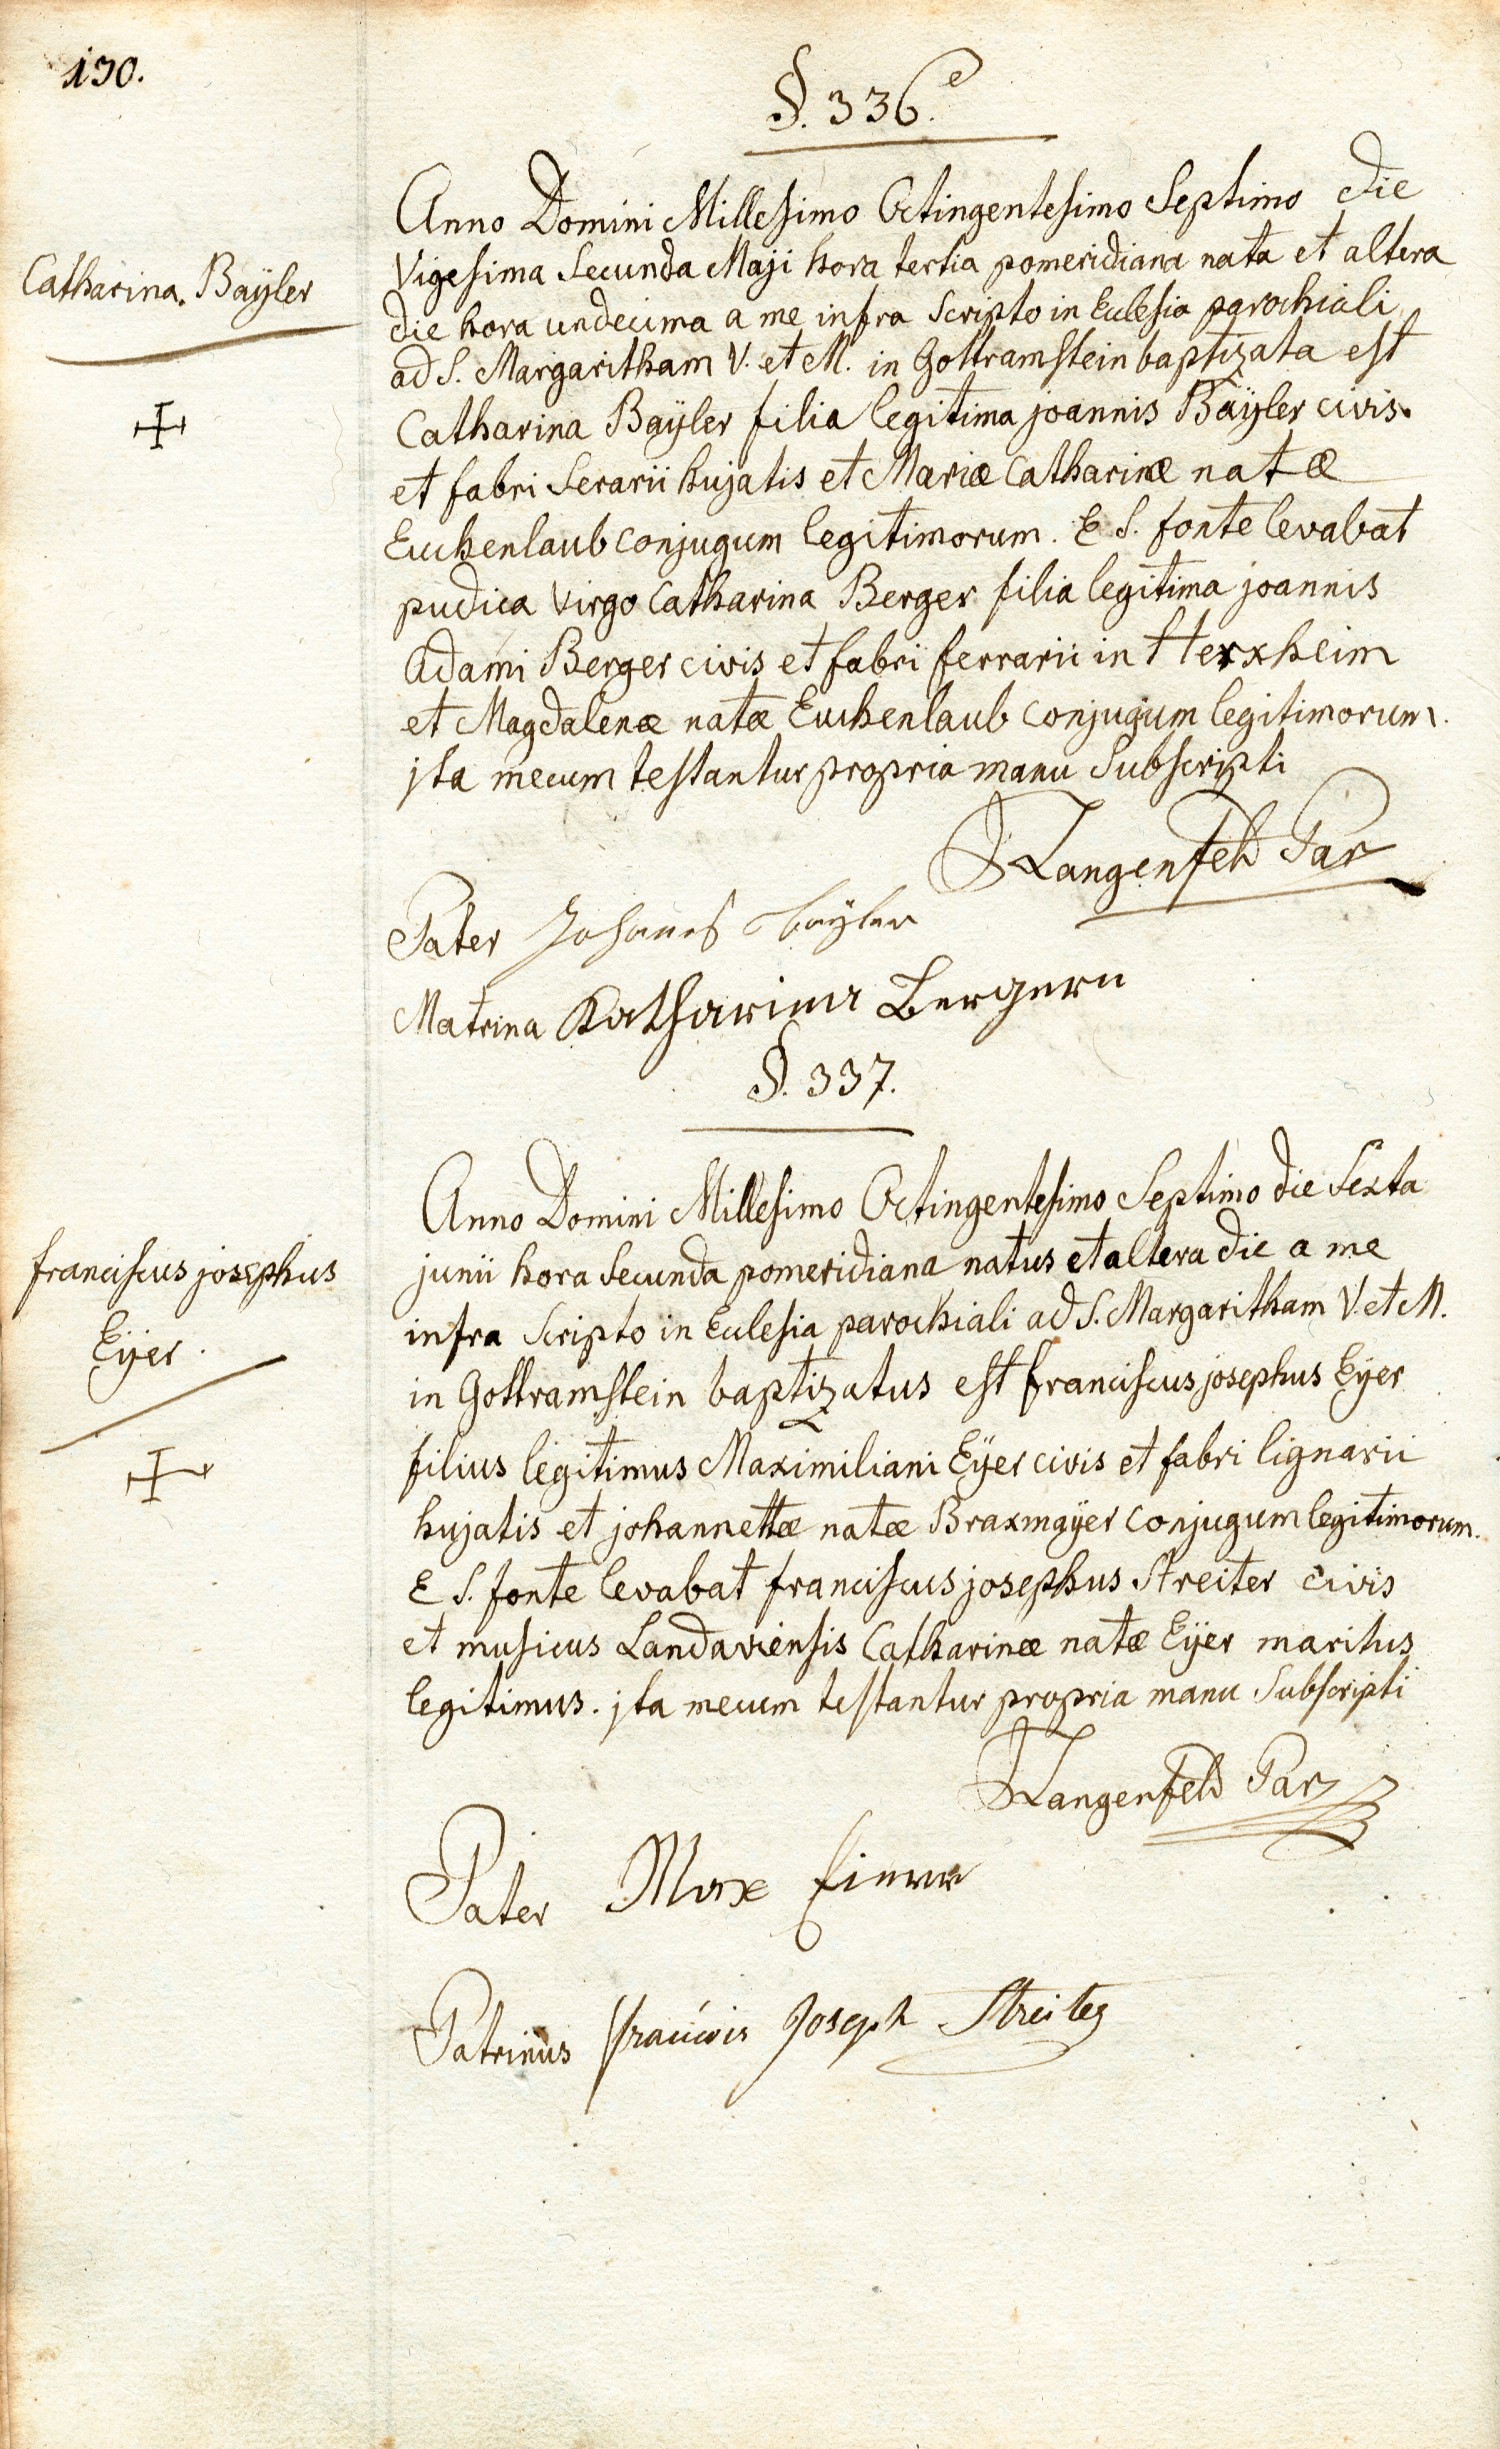 130.
§. 336.e
Catharina. Baÿler
Anno Domini Millesimo Octingentesimo Septimo die
Vigesima Secunda Maji hora tertia pomeridiana nata et altera
die hora undecima a me infra Scripto in Eclesia parochiali
ad S. Margaritham V. et M. in Gottramstein baptizata est
Catharina Baÿler filia legitima joannis Baÿler civis.
et fabri Serarii hujatis et Mariæ Catharinæ natæ
Euchenlaub conjugum legitimorum. E S. fonte levabat
pudica Virgo Catharina Berger filia legitima joannis
Adami Berger civis et fabri ferrarii in Herxheim
et Magdalenæ natæ Euchenlaub conjugum legitimorum.
jta mecum testantur propria manu Subscripti
JLangenfeld Par
Pater Johanes bayler
Matrina Katharina Bergern
§. 337.
franciscus josephus
Eÿer.
Anno Domini Millesimo Octingentesimo Septimo die Sexta
junii hora Secunda pomeridiana natus et altera die a me
infra Scripto in Eclesia parochiali ad S. Margaritham V. et M.
in Gottramstein baptizatus est franciscus josephus Eÿer
filius legitimus Maximiliani Eÿer civis et fabri lignarii
hujatis et johannettæ natæ Braxmaÿer conjugum legitimorum.
E S. fonte levabat franciscus josephus Streiter civis
et musicus Landaviensis Catharinæ natæ Eÿer maritus
legitimus. jta mecum testantur propria manu Subscripti
JLangenfeld Par
Pater Max
Patrinus francois Joseph Streiter